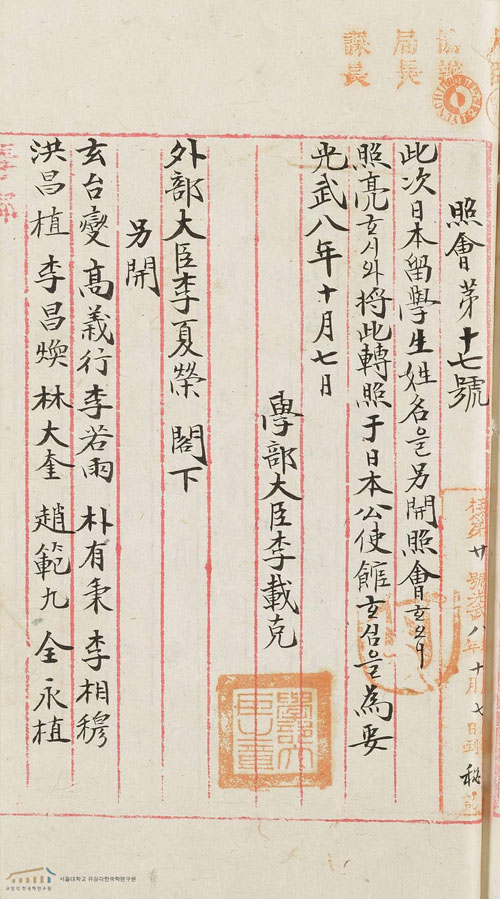 照會第十七號
此次日本留學生姓名을另開照會하오니
照亮하시와將此轉照于日本公使館하심을爲要
光武八年十月七日
學部大臣李載克
外部大臣李夏榮 閣下
另開
玄台燮 高義行 李若雨 朴有秉 李相穆
洪昌植 李昌煥 林大奎 趙範九 全永植
局長
課長
學部大臣章
號光武八年十月七日
서울대학교 규장각한국학연구원
규장각한국학연구원